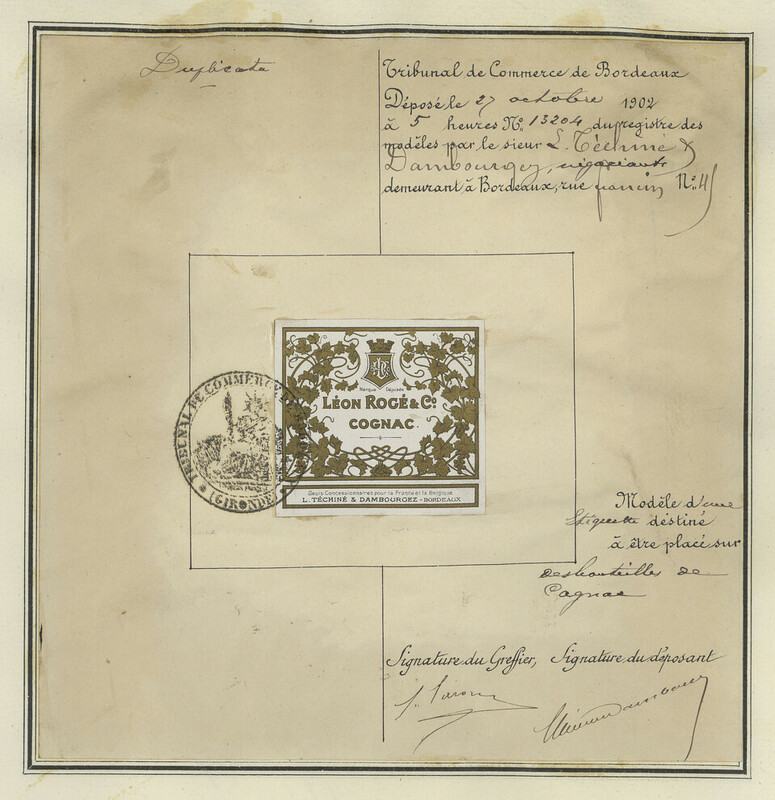 Duplicata
Tribunal de Commerce de Bordeaux
Déposé le 27 octobre 1902
à 5 heures N° 13204 du registre des
modèles par le sieur L. Téchiné &
Dambourgez, négociants
demeurant à Bordeaux, rue Francin N° 4
Marque Déposée
LÉON ROGÉ & Co
COGNAC
Seuls Concessionnaires pour la France et la Belgique
L. TÉCHINÉ & DAMBOURGEZ - BORDEAUX
TRIBUNAL DE COMMERCE DE
(GIRONDE)
Modèle d'une
étiquette destiné
à être placé sur
des bouteilles de
Cognac
Signature du Greffier, Signature du déposant